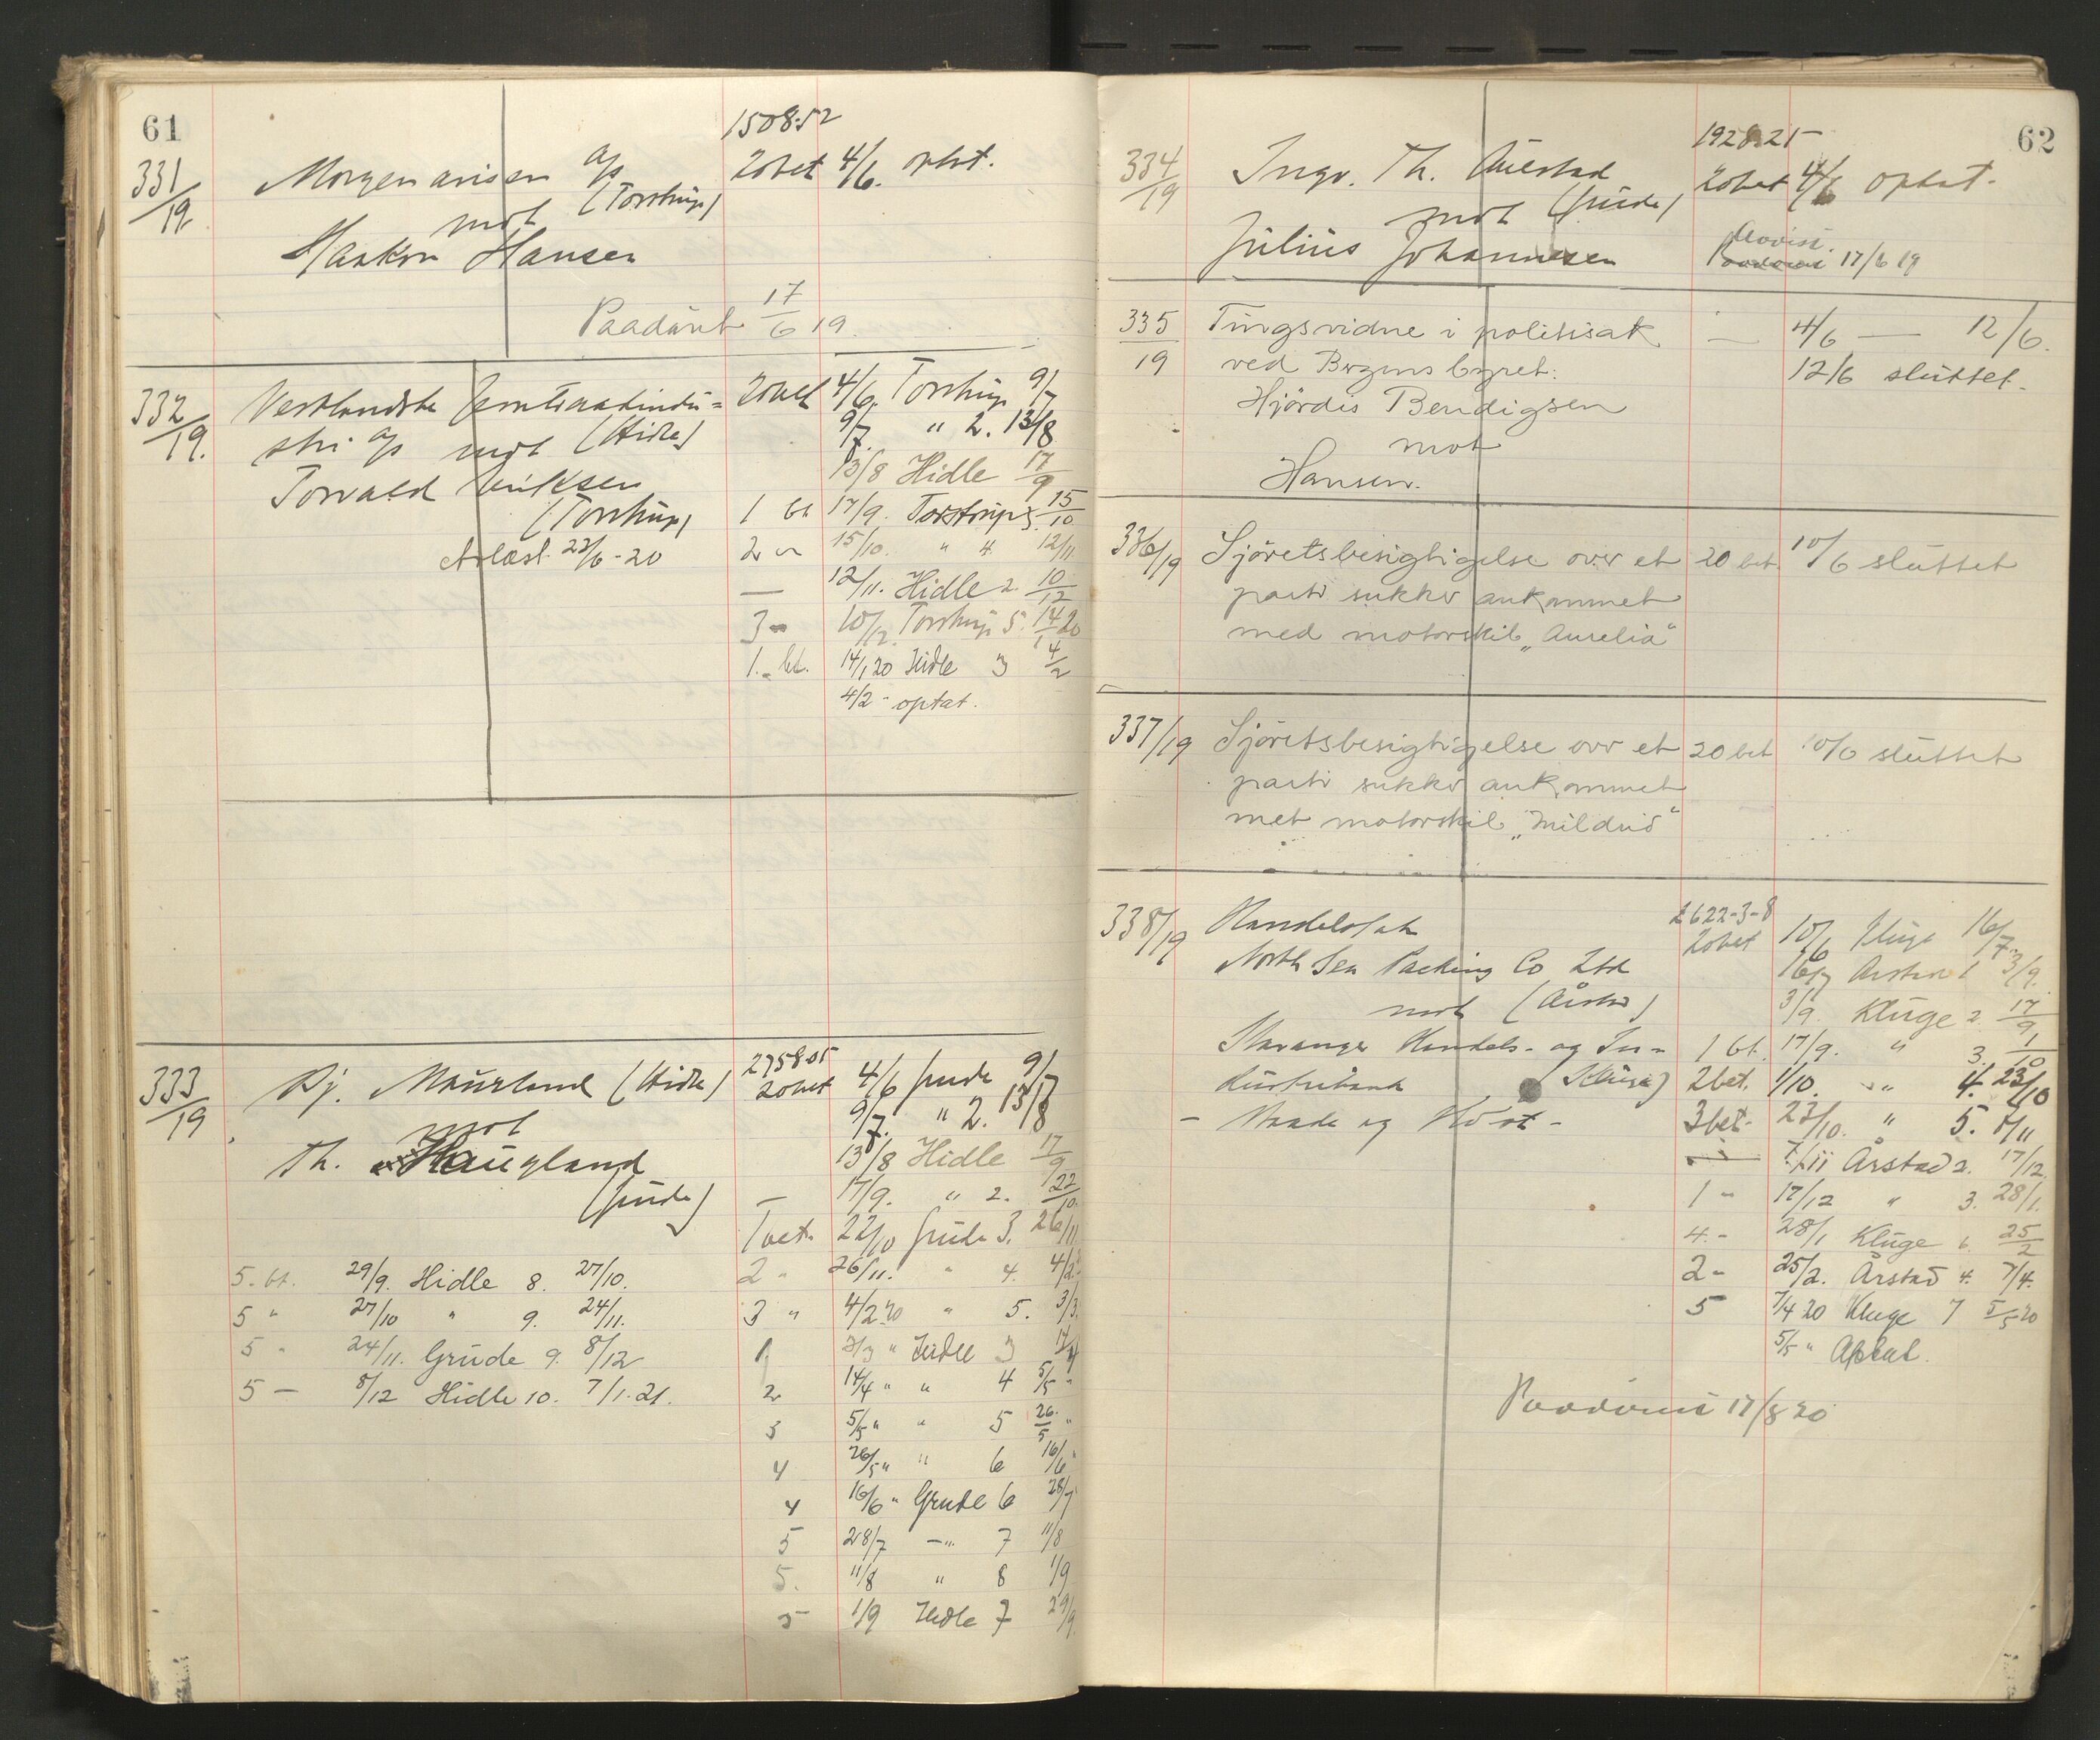 61
1508.52
331/19 Morgenavisen A/S (Torstrup) 20 bet 4/6. optat.
mot
Haakon Hansen
Paadømt 17/6 19.
332/19. Vestlandske 20 bet 4/6. Torstrup 9/7
stri A/S mot (Hidle) 9/7. " 2. 13/8
Torvald Eriksen 13/8 Hidle 17/9
(Torstrup) 1 bt 17/9. Torstrup 3. 15/10
Avlæst 22/6-20 2 " 15/10. " 4. 12/11
— 12/11. Hidle 2. 10/12
3 " 10/12. Torstrup 5. 14/1 20
1. bt. 14/1 20 Hidle 3 4/2
4/2 - optat.
333/19 Rj. Maurland (Hidle) 2758.05
20 bet 4/6 Grude 9/7
mot 9/7. " 2. 13/8
Th. Haugland 13/8 Hidle 17/9
(Grude) — 17/9. " 2. 22/10.
1 bet. 22/10 Grude 3. 26/11
5. bt. 29/9. Hidle 8. 27/10. 2 " 26/11. " 4. 4/2
5 " 27/10 " 9. 24/11. 3 " 4/2 20 " 5. 3/3.
5 " 24/11. Grude 9. 8/12 1 3/3 " Hidle 3 14/4
5 — 8/12 Hidle 10. 7/1. 21. 2 14/4 " " 4 5/5 "
3 5/5 " " 5 26/5 "
4 26/5 " " 6 16/6 "
4 16/6 " Grude 6 28/7
5 28/7 — " 7 11/8
5. 11/8 " 8 1/9
5 1/9 Hidle 7 29/9.
62
1928.21
334/19 Ingv. Th. Auestad 20 bet 4/6 optat.
mot (Grude)
Julius Johannesen Avvist. 17/6 19
335/19 Tingsvidne i politisak — 4/6 — 12/6.
ved Bergens byret: 12/6 sluttet.
Hjørdis Bendigsen
mot
Hansen.
336/19 Sjøretsbesigtigelse over et 20 bet. 10/6 sluttet
parti sukker ankommet
med motorskib „Aurelia"
337/19 Sjøretsbesigtigelse over et 20 bet 10/6 sluttet
parti sukker ankommet
met motorskib „Mildrid"
338/19 Handelssak £ 622-3-8
20 bet 10/6 Kluge 16/7
North Sea Packing Co Ltd 16/7 Aarstad 1 3/9.
mot (Årstad) 3/9. Kluge 2. 17/9
Stavanger Handels- og In- 1 bt. 17/9. " 3. 1/10
dustribank (Kluge) 2 bet. 1/10. " 4. 23/10
3 bet. 23/10. " 5. 7/11
7/11 Årstad 2. 17/12.
1 " 17/12 " 3. 28/1.
4. " 28/1 Kluge 6. 25/2
2 " 25/2. Årstad 4. 7/4.
5 7/4 20 Kluge 7 5/5 20
5/5 " Optat.
Paadømt 17/8 20